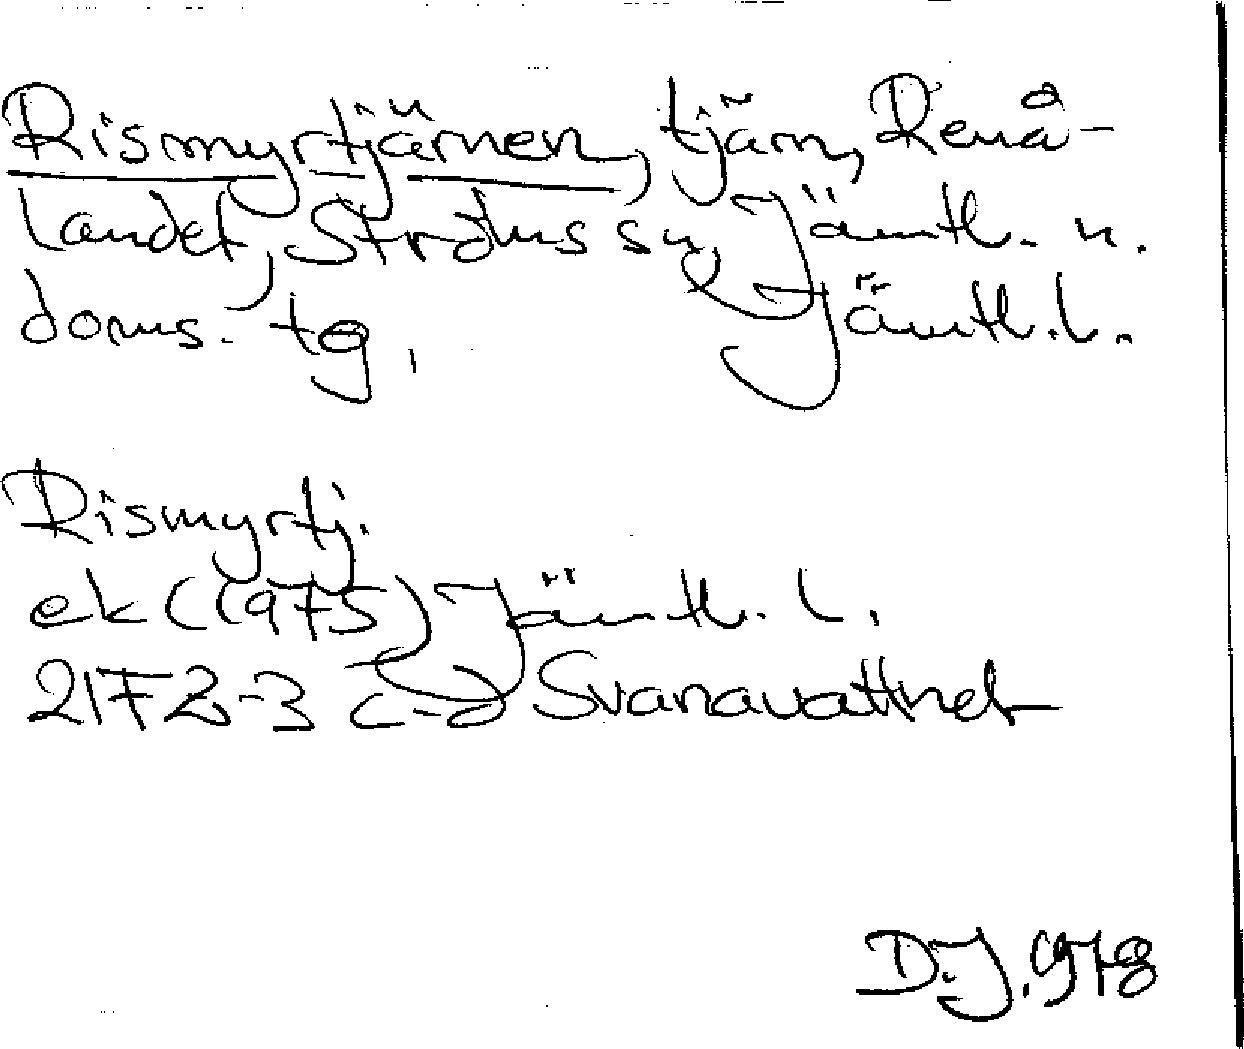 Rismyrtjärnen, tjärn, Renå-
landet, Ströms sn, Jämtl. n.
doms. tg, Jämtl. l.
Rismyrtj.
ek (1975) Jämtl. l.
21F 2-3 c-d Svanavattnet
D.J. 1978